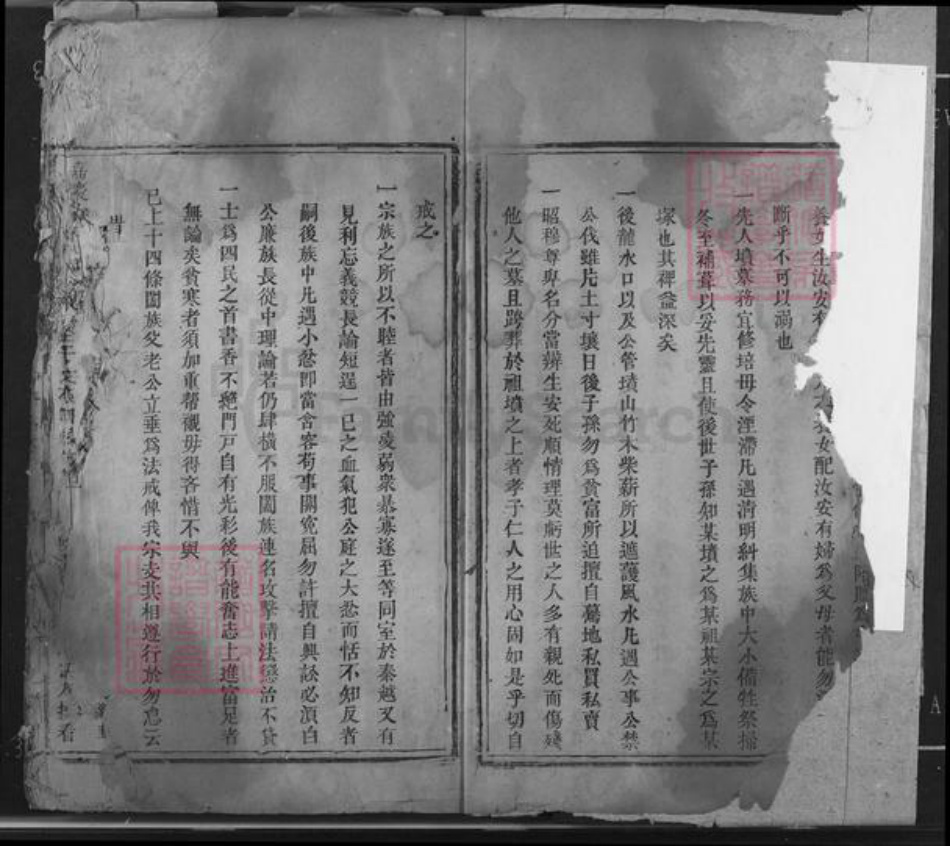 養女生汝安有
女配汝安有婦爲父母者能勿
斷乎不可以溺也
一先人墳墓務宜修培毋令湮滯凡遇淸明糾集族中大小備牲祭掃
冬至補葺以妥先靈且使後世子孫知某墳之爲某祖某宗之爲某
塚也其裨益深矣
一後龍水口以及公管墳山竹木柴薪所以遮護風水凡遇公事公禁
公伐雖片土寸壤日後子孫勿爲貧富所迫擅自驀地私買私賣
一昭穆尊卑名分當辨生安死順情理莫虧世之人多有親死而傷殘
他人之墓且跨葬於祖墳之上者孝子仁人之用心固如是乎切自
戒之
一宗族之所以不睦者皆由強凌弱衆暴寡遂至等同室於秦越又有
見利忘義競長論短逞一已之血氣犯公庭之大忿而恬不知反者
嗣後族中凡遇小忿卽當含容苟事關寃屈勿許擅自興訟必湏白
公廉族長從中理論若仍肆橫不服闔族連名攻擊請法懲治不貸
一士爲四民之首書香不絶門戸自有光彩後有能奮志上進富足者
無論矣貧寒者須加重帮襯毋得吝惜不與
已上十四條闔族父老公立垂爲法戒俾我宗支共相遵行於勿怠云